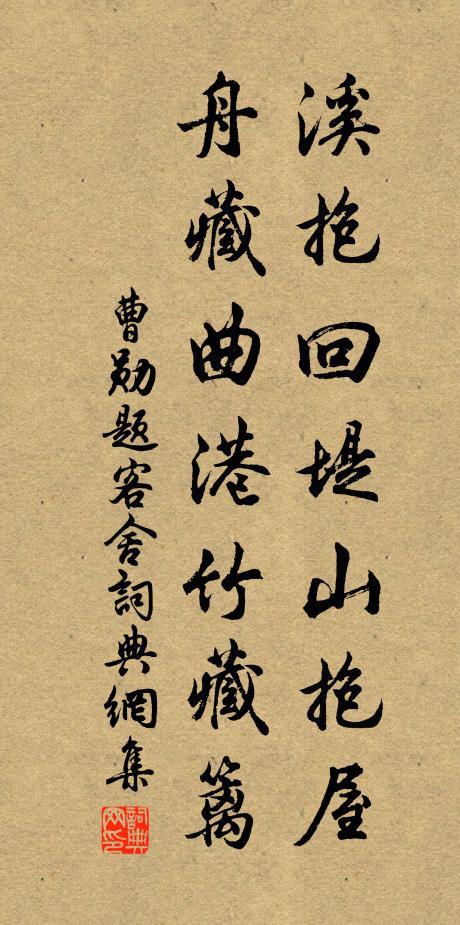 溪抱回堤山抱屋
舟藏曲港竹藏篱
曹勋题客舍詞典網集
詞典网印